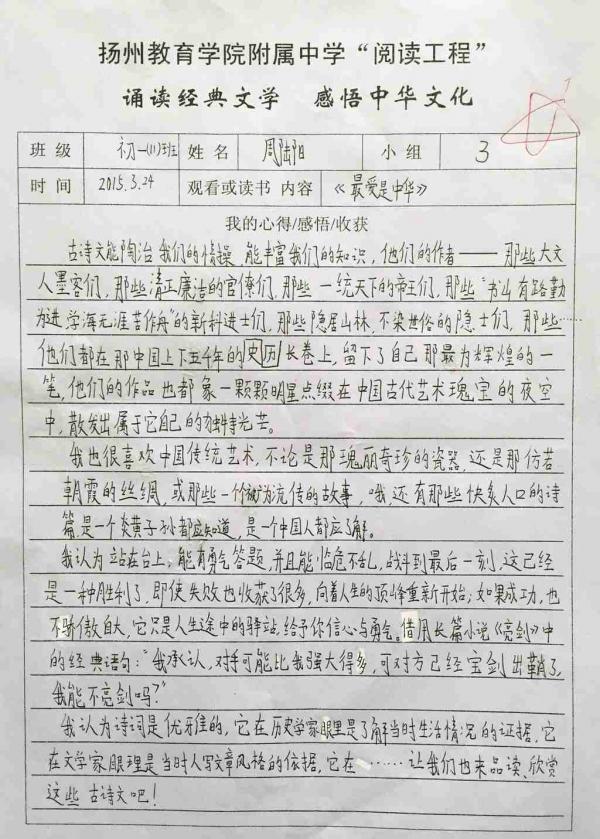 扬州教育学院附属中学“阅读工程”
诵读经典文学 感悟中华文化
班级 初一(11)班 姓名 周陆阳 小组 3
时间 2015.3.24 观看或读书 内容 《最爱是中华》
我的心得/感悟/收获
古诗文能陶冶我们的情操，能丰富我们的知识，他们的作者——那些大文
人墨客们，那些清正廉洁的官僚们，那些一统天下的帝王们，那些“书山有路勤
为进，学海无涯苦作舟”的新科进士们，那些隐居山林、不染世俗的隐士们，那些……
他们都在那中国上下五千年的史历长卷上，留下了自己那最为辉煌的一
笔，他们的作品也都象一颗颗明星点缀在中国古代艺术瑰宝的夜空
中，散发出属于它自己的独特光芒。
我也很喜欢中国传统艺术，不论是那瑰丽奇珍的瓷器，还是那仿若
朝霞的丝绸，或那些一个被为流传的故事，哦，还有那些快炙人口的诗
篇，是一个炎黄子孙都应知道，是一个中国人都应了解。
我认为站在台上，能有勇气答题，并且能临危不乱，战斗到最后一刻，这已经
是一种胜利了，即使失败也收获了很多，向着人生的顶峰重新开始；如果成功，也
不骄傲自大，它只是人生途中的驿站，给予你信心与勇气。借用长篇小说《亮剑》中
的经典语句：“我承认，对手可能比我强大得多，可对方已经宝剑出鞘了，
我能不亮剑吗？”
我认为诗词是优雅的，它在历史学家眼里是了解当时生活情况的证据，它
在文学家眼理是当时人写文章风格的依据，它在……让我们也来品读、欣赏
这些古诗文吧！